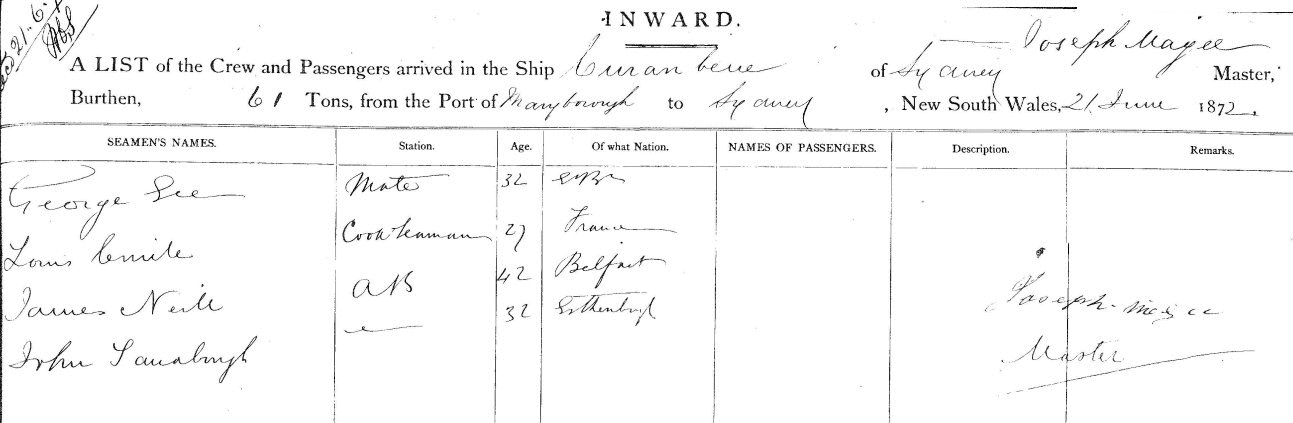 Recd 21.6.
INWARD.
Joseph Magee
A LIST of the Crew and Passengers arrived in the Ship of Sydney Master,
Burthen, 61 Tons, from the Port of Maryborough to Sydney, New South Wales, 21 June 1872.
SEAMEN'S NAMES. Station. Age. Of what Nation. NAMES OF PASSENGERS. Description. Remarks.
George Lee Mate 32
Louis Emile Cook Seaman 27 France
James Neill AB 42 Belfast
John 32
Joseph Magee
Master